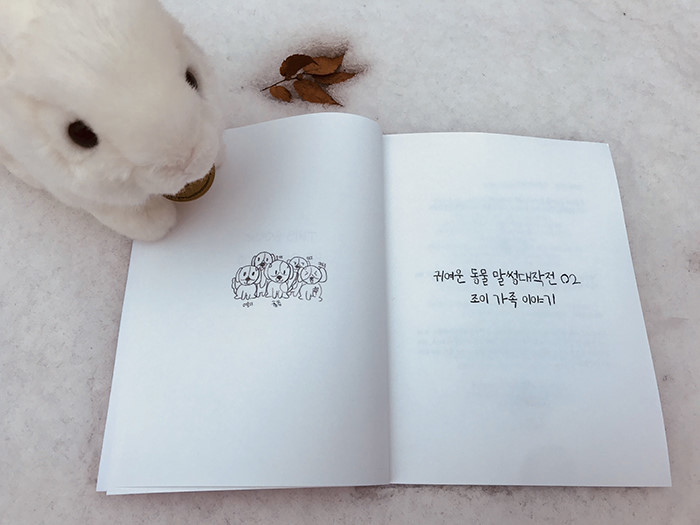 귀여운 동물 말썽대작전 02
조이 가족 이야기